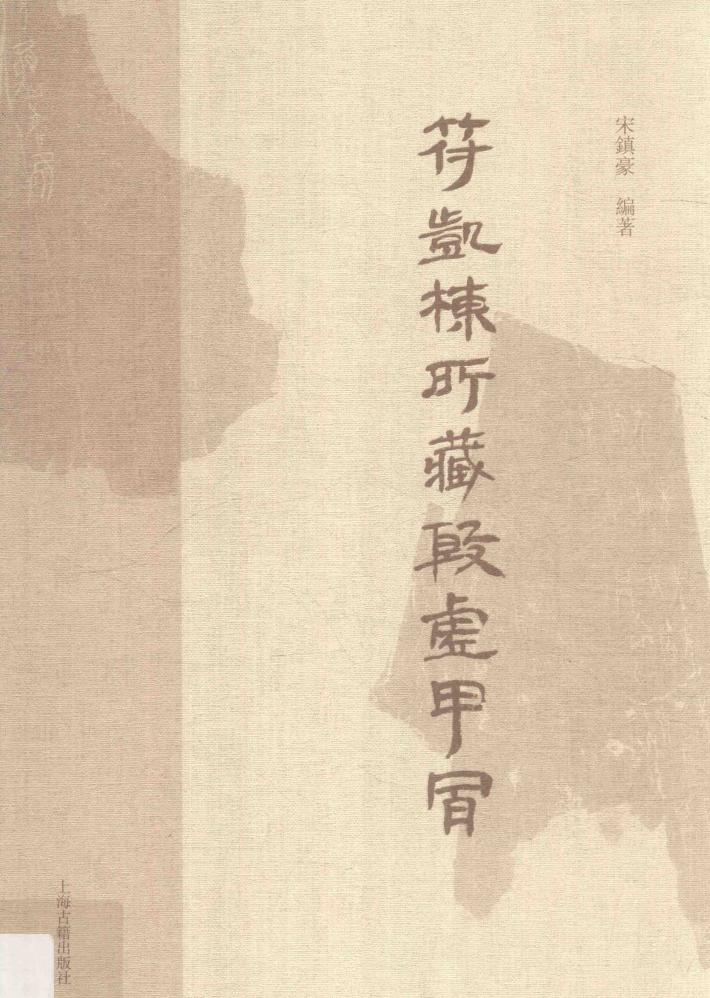 宋鎮豪 編著
符凱棟所藏殷虛甲骨
上海古籍出版社